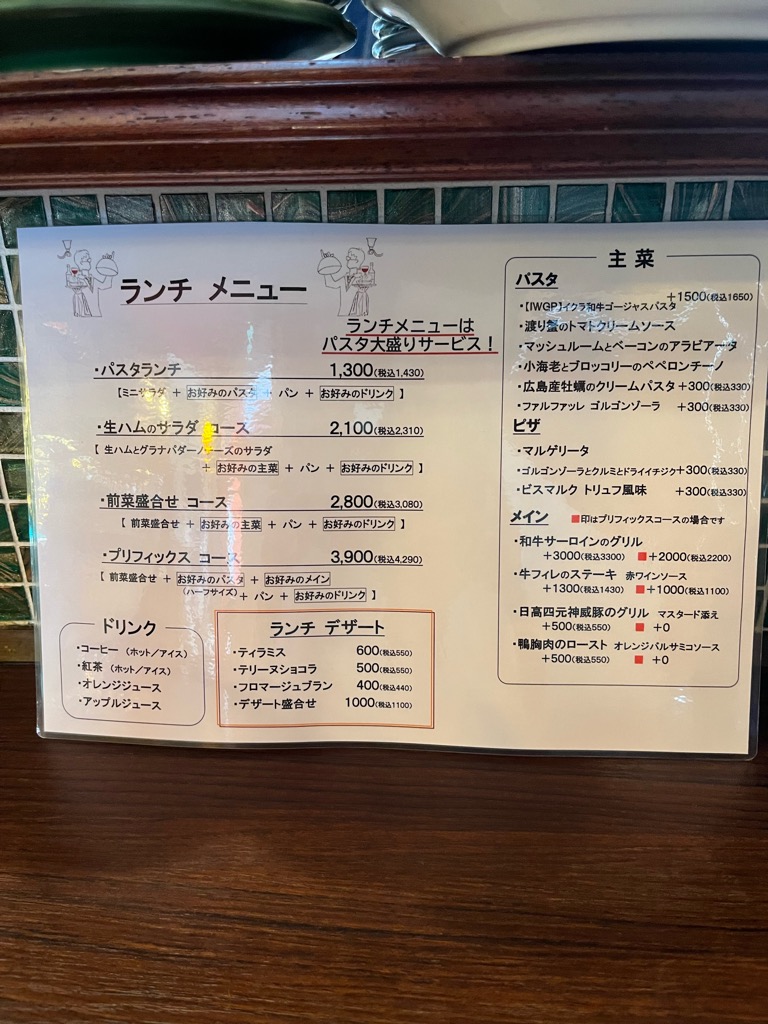 ランチ メニュー
ランチメニューは
パスタ大盛りサービス！
・パスタランチ 1,300(税込1,430)
【ミニサラダ + お好みのパスタ + パン + お好みのドリンク 】
・生ハムのサラダ コース 2,100(税込2,310)
【 生ハムとグラナパダーノチーズのサラダ
+ お好みの主菜 + パン + お好みのドリンク 】
・前菜盛合せ コース 2,800(税込3,080)
【 前菜盛合せ + お好みの主菜 + パン + お好みのドリンク 】
・プリフィックス コース 3,900(税込4,290)
【 前菜盛合せ + お好みのパスタ + お好みのメイン
(ハーフサイズ) + パン + お好みのドリンク 】
ドリンク
・コーヒー (ホット／アイス)
・紅茶 (ホット／アイス)
・オレンジジュース
・アップルジュース
ランチ デザート
・ティラミス 600(税込550)
・テリーヌショコラ 500(税込550)
・フロマージュブラン 400(税込440)
・デザート盛合せ 1000(税込1100)
主菜
パスタ
+1500(税込1650)
・【IWGP】イクラ和牛ゴージャスパスタ
・渡り蟹のトマトクリームソース
・マッシュルームとベーコンのアラビアータ
・小海老とブロッコリーのペペロンチーノ
・広島産牡蠣のクリームパスタ +300(税込330)
・ファルファッレ ゴルゴンゾーラ +300(税込330)
ピザ
・マルゲリータ
・ゴルゴンゾーラとクルミとドライイチジク+300(税込330)
・ビスマルク トリュフ風味 +300(税込330)
メイン ■印はプリフィックスコースの場合です
・和牛サーロインのグリル
+3000(税込3300) ■+2000(税込2200)
・牛フィレのステーキ 赤ワインソース
+1300(税込1430) ■+1000(税込1100)
・日高四元神威豚のグリル マスタード添え
+500(税込550) ■ +0
・鴨胸肉のロースト オレンジバルサミコソース
+500(税込550) ■ +0